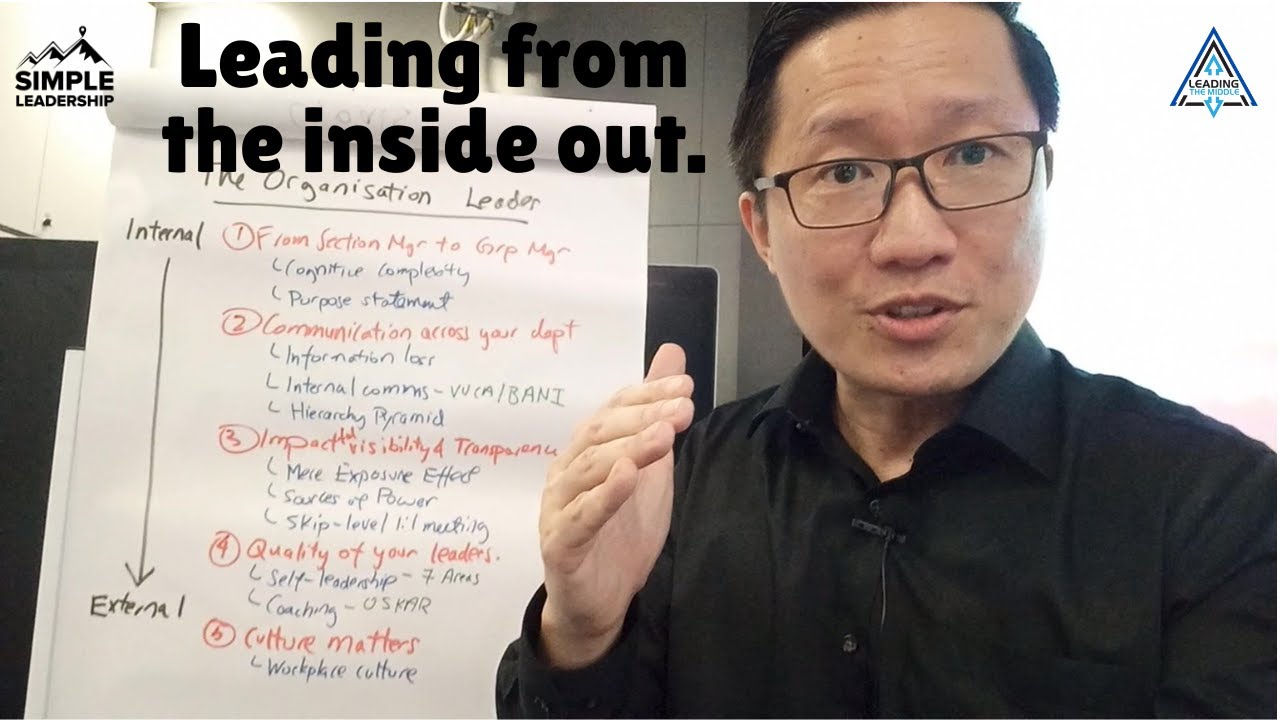 SIMPLE
LEADERSHIP
Leading from
the inside out.
LEADING
THE MIDDLE
The Organisation Leader
Internal
① From Section Mgr to Grp Mgr
Cognitive Complexity
Purpose statement
② Communication across your dept
Information loss
Internal comms - VUCA/BANI
Hierarchy Pyramid
③ Impactful visibility & Transparency
Mere Exposure Effect
Sources of Power
Skip-level 1:1 meeting
④ Quality of your leaders.
Self-leadership - 7 Areas
Coaching - OSKAR
External
⑤ Culture matters
Workplace culture